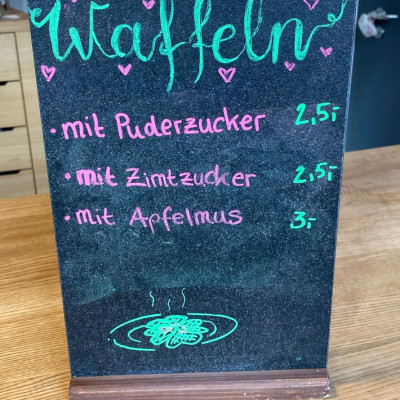 Waffeln
• mit Puderzucker 2,5,-
• mit Zimtzucker 2,5,-
• mit Apfelmus 3,-